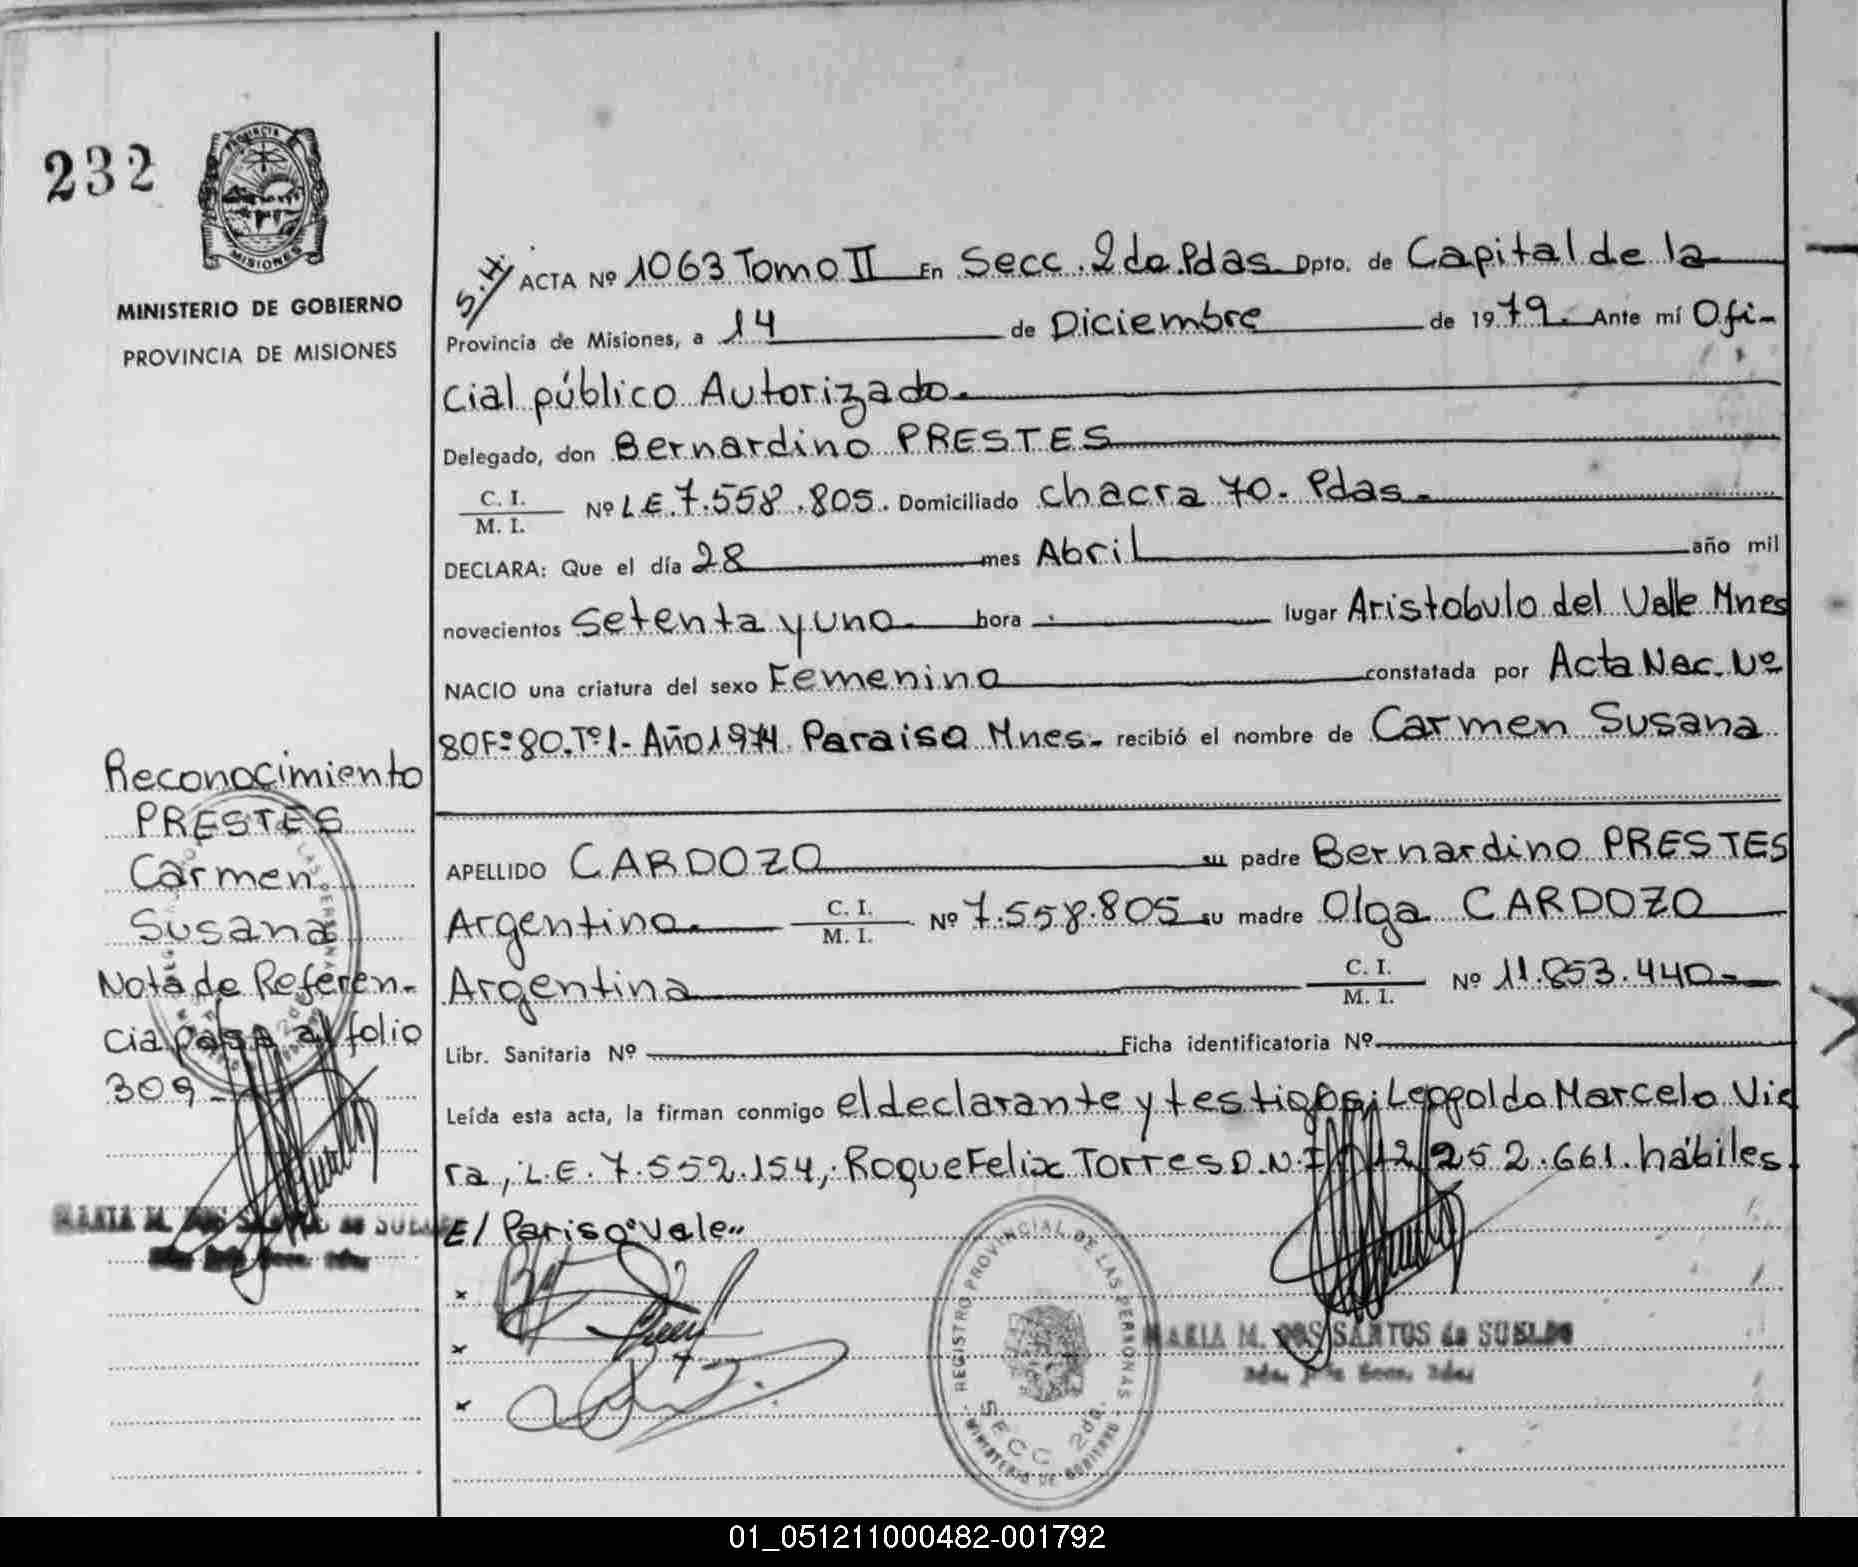 232
PROVINCIA
MISIONES
MINISTERIO DE GOBIERNO
PROVINCIA DE MISIONES
ACTA Nº 1063 Tomo II En Secc. 2da. Pdas Dpto. de Capital de la
Provincia de Misiones, a 14 de Diciembre de 1979. Ante mí Ofi-
cial público Autorizado.
Delegado, don Bernardino PRESTES
C. I.
M. I.
Nº L.E. 7.558.805. Domiciliado chacra 70. Pdas.
DECLARA: Que el día 28 mes Abril año mil
novecientos setenta y uno hora lugar Aristobulo del Valle Mnes
NACIO una criatura del sexo Femenino constatada por Acta Nac. Nº
80 Fº 80. Tº 1- Año 1974. Paraiso Mnes. recibió el nombre de Carmen Susana
APELLIDO CARDOZO su padre Bernardino PRESTES
Argentino. C. I. M. I. Nº 7.558.805 su madre Olga CARDOZO
Argentina C. I. M. I. Nº 11.853.440-
Libr. Sanitaria Nº Ficha identificatoria Nº
Leída esta acta, la firman conmigo el declarante y testigos; Leopoldo Marcelo Vie
ra, L.E. 7.552.154, Roque Felix Torres D.N.I. 12.252.661. hábiles.
E/ Pariso "Vale"
Reconocimiento
PRESTES
Carmen
Susana
Nota de Referen-
cia pasa al folio
309-
REGISTRO PROVINCIAL DE LAS PERSONAS
SECC 2da.
MINISTERIO DE GOBIERNO
MARIA M. DOS SANTOS de SUELDO
01_051211000482-001792